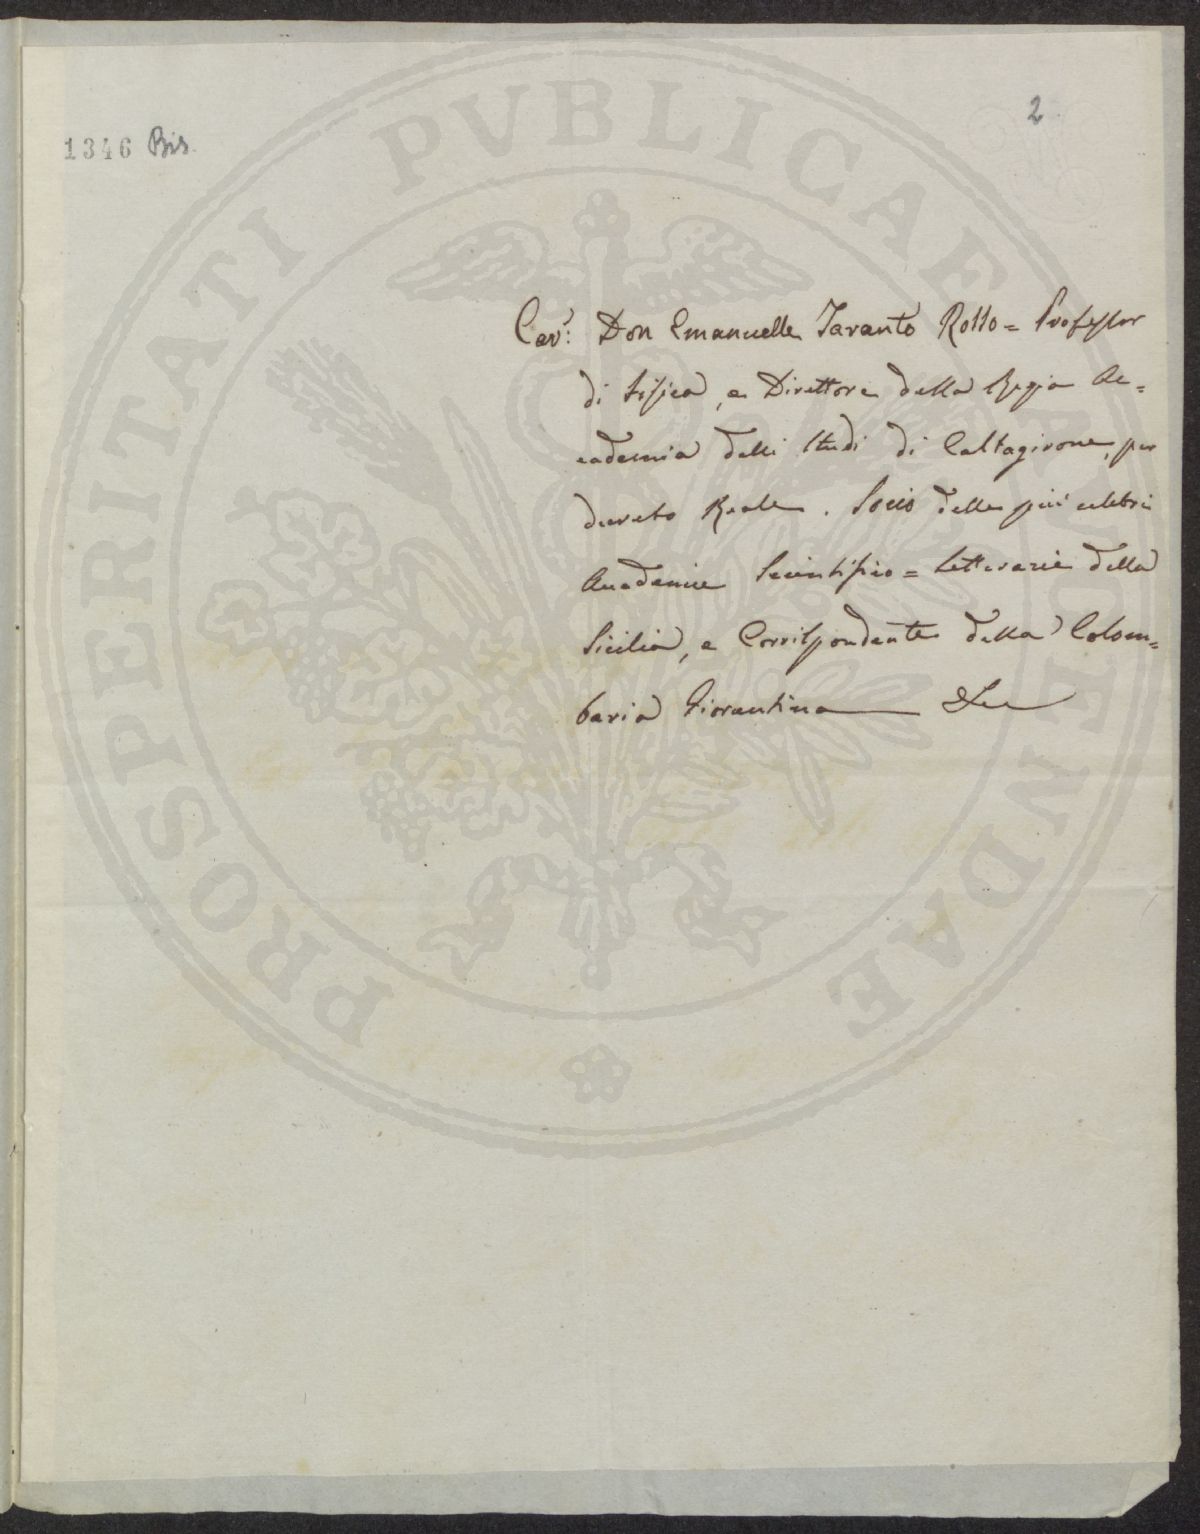 2
1346 Bis
PROSPERITATI PVBLICAE AVGENDAE
Cav.r Don Emanuelle Taranto Rosso = Professor
di Fisica, e Direttore della Regia Ac=
cademia delli Studi di Caltagirone, per
decreto Reale. Socio delle più celebri
Accademie Scientifico = Letterarie della
Sicilia, e Corrispondente della Colom=
baria Fiorentina